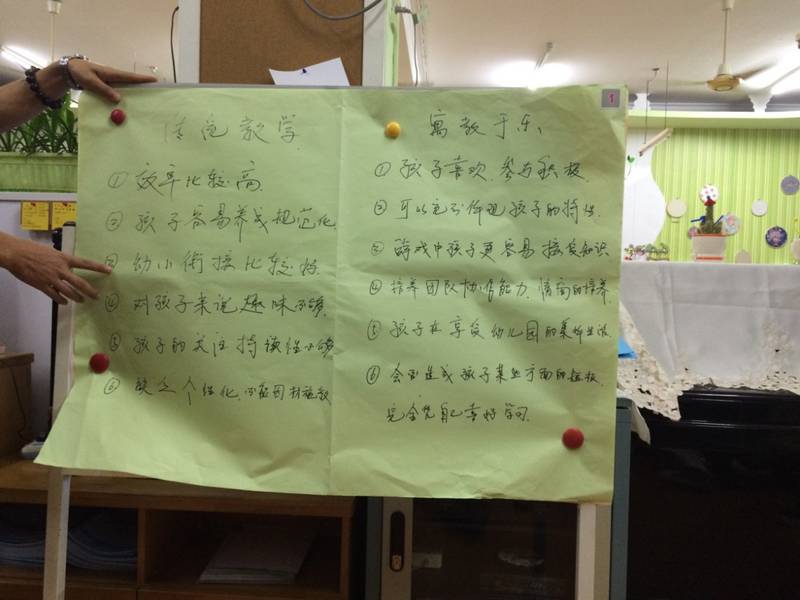 传统教学
① 效率比较高
② 孩子容易养成规范化
③ 幼小衔接比较好
④ 对孩子来说趣味不够
⑤ 孩子的关注持续性不够
⑥ 缺乏个性化,不能因材施教
寓教于乐
① 孩子喜欢,参与积极
② 可以充分体现孩子的特性
③ 游戏中孩子更容易接受知识
④ 培养团队协作能力,情商的培养
⑤ 孩子在享受幼儿园的集体生活
⑥ 会造成孩子某些方面的
完全凭自己喜好学习
1